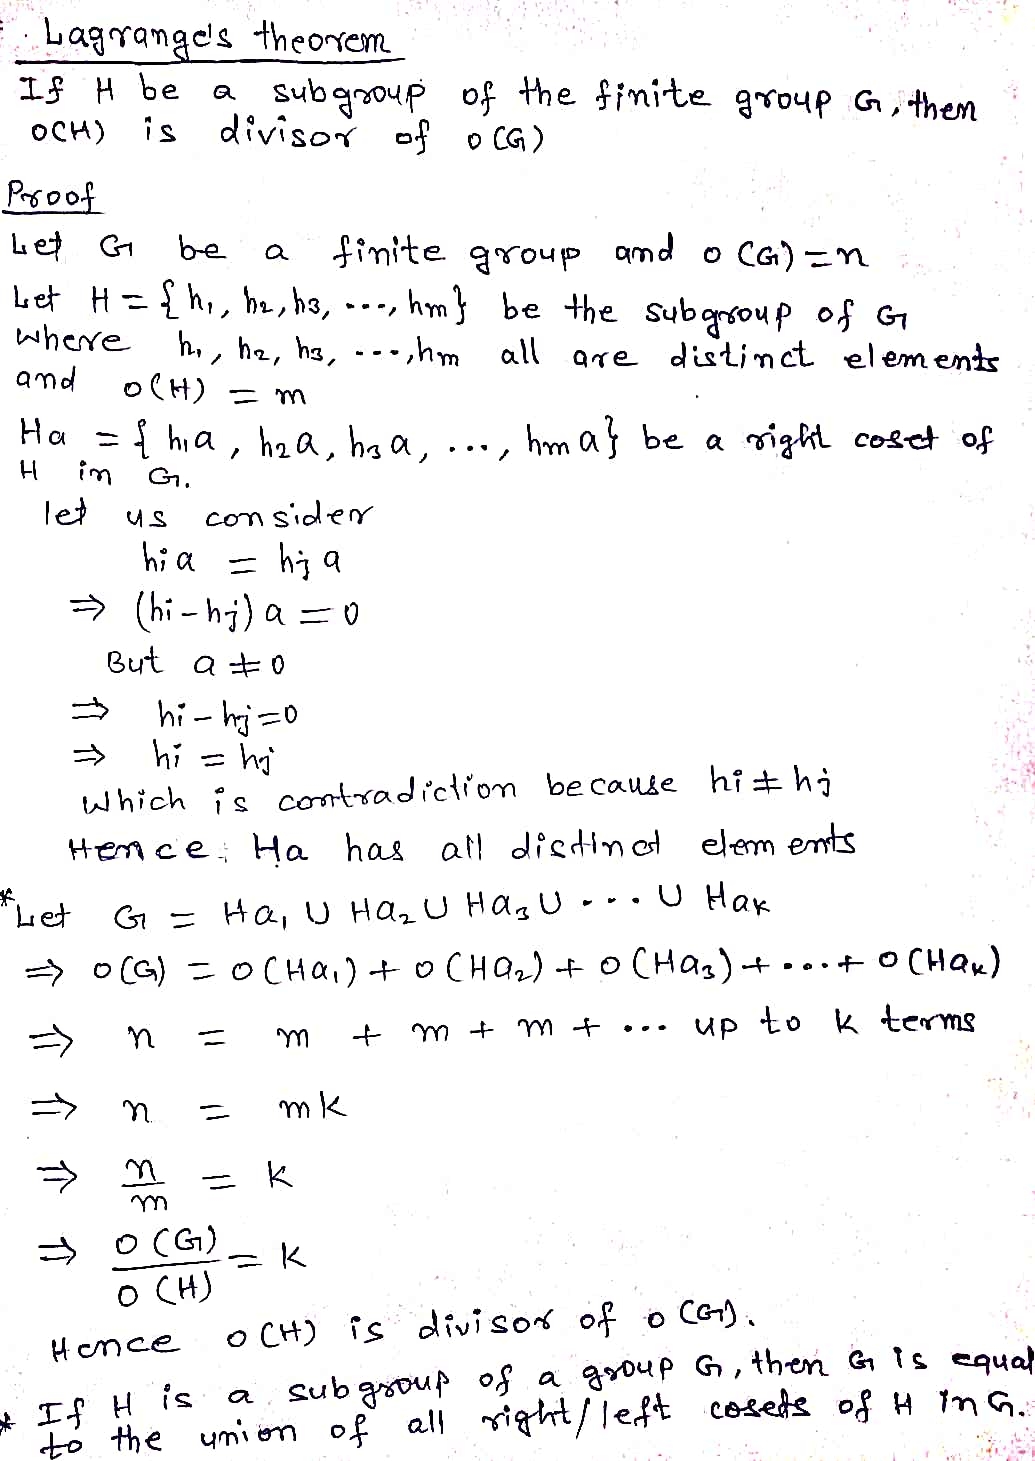 Lagrange's theorem
If H be a subgroup of the finite group G, then
O(H) is divisor of o(G)
Proof
Let G be a finite group and o(G) = n
Let H = {h₁, h₂, h₃, ---, hm} be the subgroup of G
where h₁, h₂, h₃, ---, hm all are distinct elements
and o(H) = m
Ha = {h₁a, h₂a, h₃a, ..., hma} be a right coset of
H in G.
let us consider
hia = hja
⇒ (hi-hj)a = 0
But a ≠ 0
⇒ hi-hj=0
⇒ hi = hj
which is contradiction because hi ≠ hj
Hence, Ha has all distinct elements
*Let G = Ha₁ U Ha₂ U Ha₃ U ... U Hak
⇒ o(G) = o(Ha₁) + o(Ha₂) + o(Ha₃) + ... + o(Hak)
⇒ n = m + m + m + ... up to k terms
⇒ n = mk
⇒ n/m = k
⇒ o(G)/o(H) = k
Hence o(H) is divisor of o(G).
* If H is a subgroup of a group G, then G is equal
to the union of all right/left cosets of H in G.